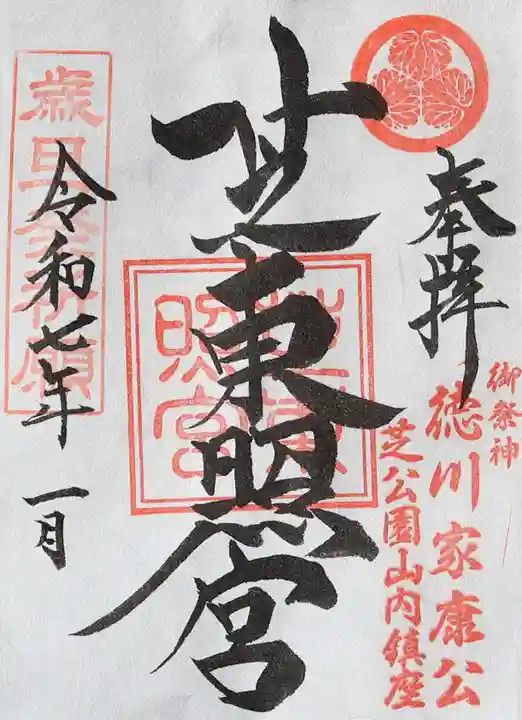 奉拝
御祭神
徳川家康公
芝公園山内鎮座
芝東照宮
芝東照宮
令和七年
一月